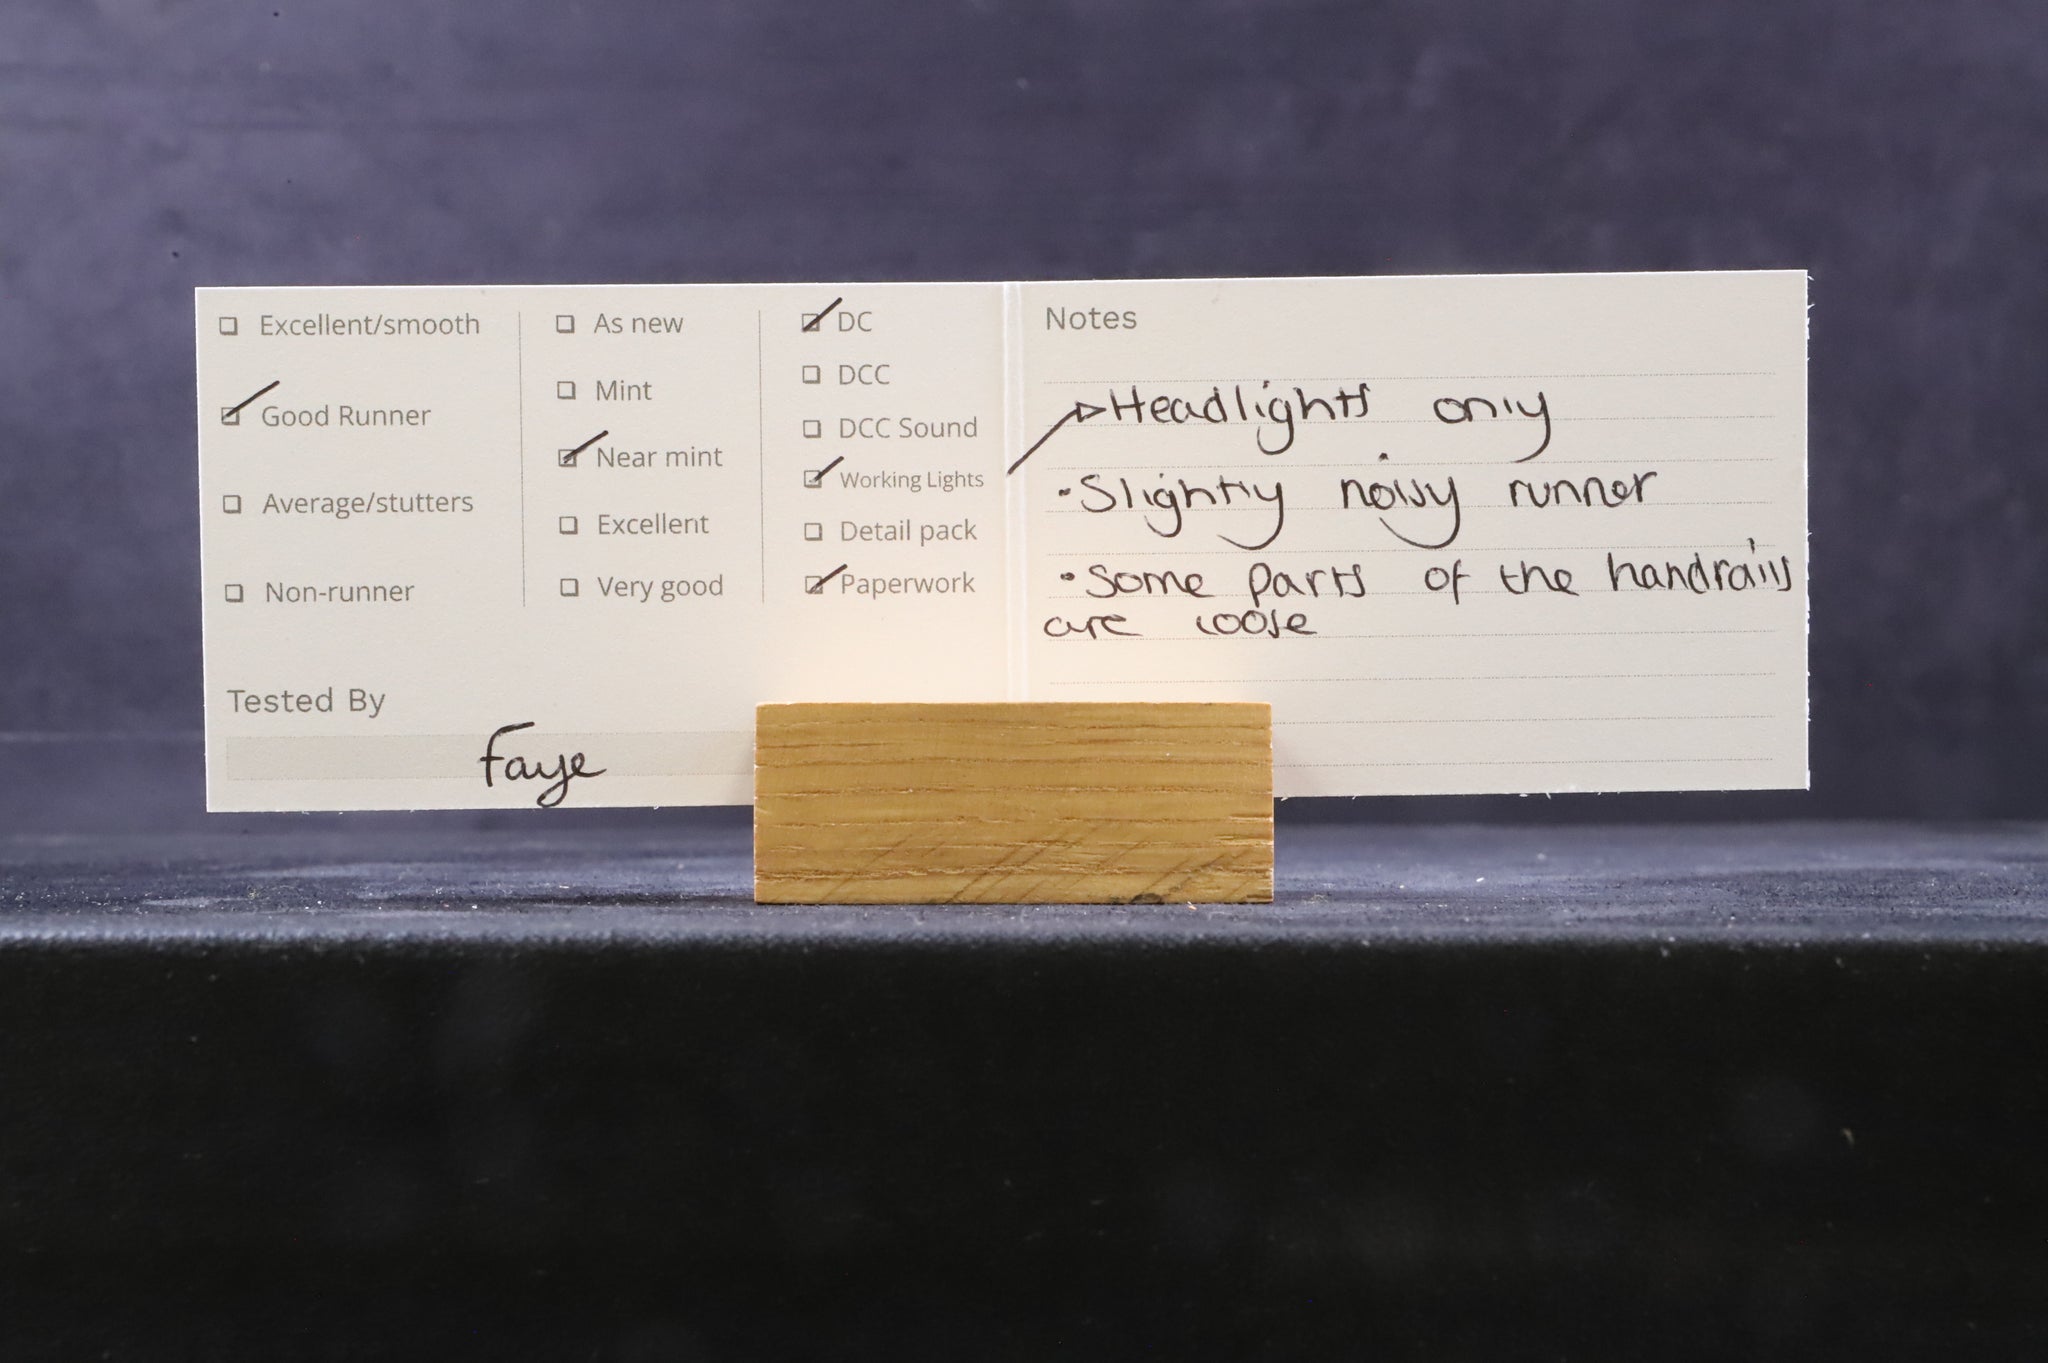 Excellent/smooth
Good Runner
Average/stutters
Non-runner
As new
Mint
Near mint
Excellent
Very good
DC
DCC
DCC Sound
Working Lights
Detail pack
Paperwork
Tested By
Faye
Notes
Headlights only
• Slightly noisy runner
• Some parts of the handrails
are loose